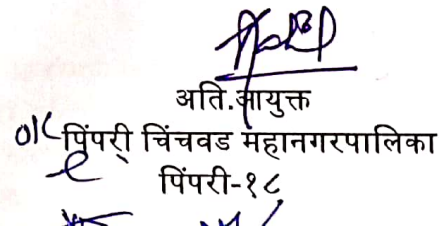 अति.आयुक्त
पिंपरी चिंचवड महानगरपालिका
पिंपरी-१८